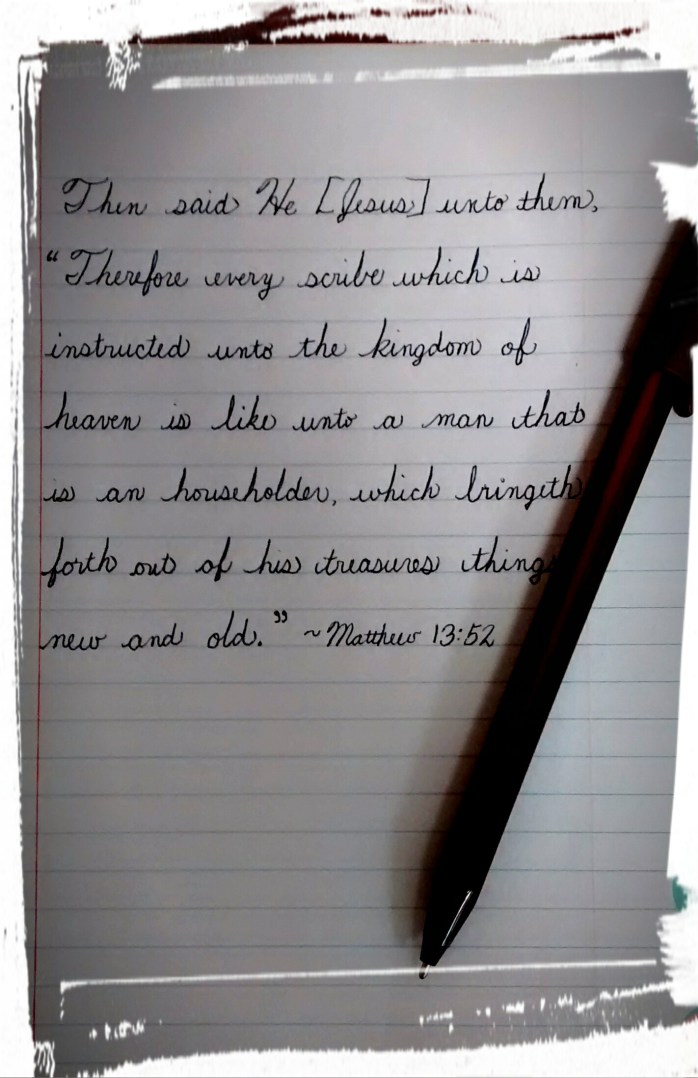 Then said He [Jesus] unto them,
“Therefore every scribe which is
instructed unto the kingdom of
heaven is like unto a man that
is an householder, which bringeth
forth out of his treasures things
new and old.” ~Matthew 13:52